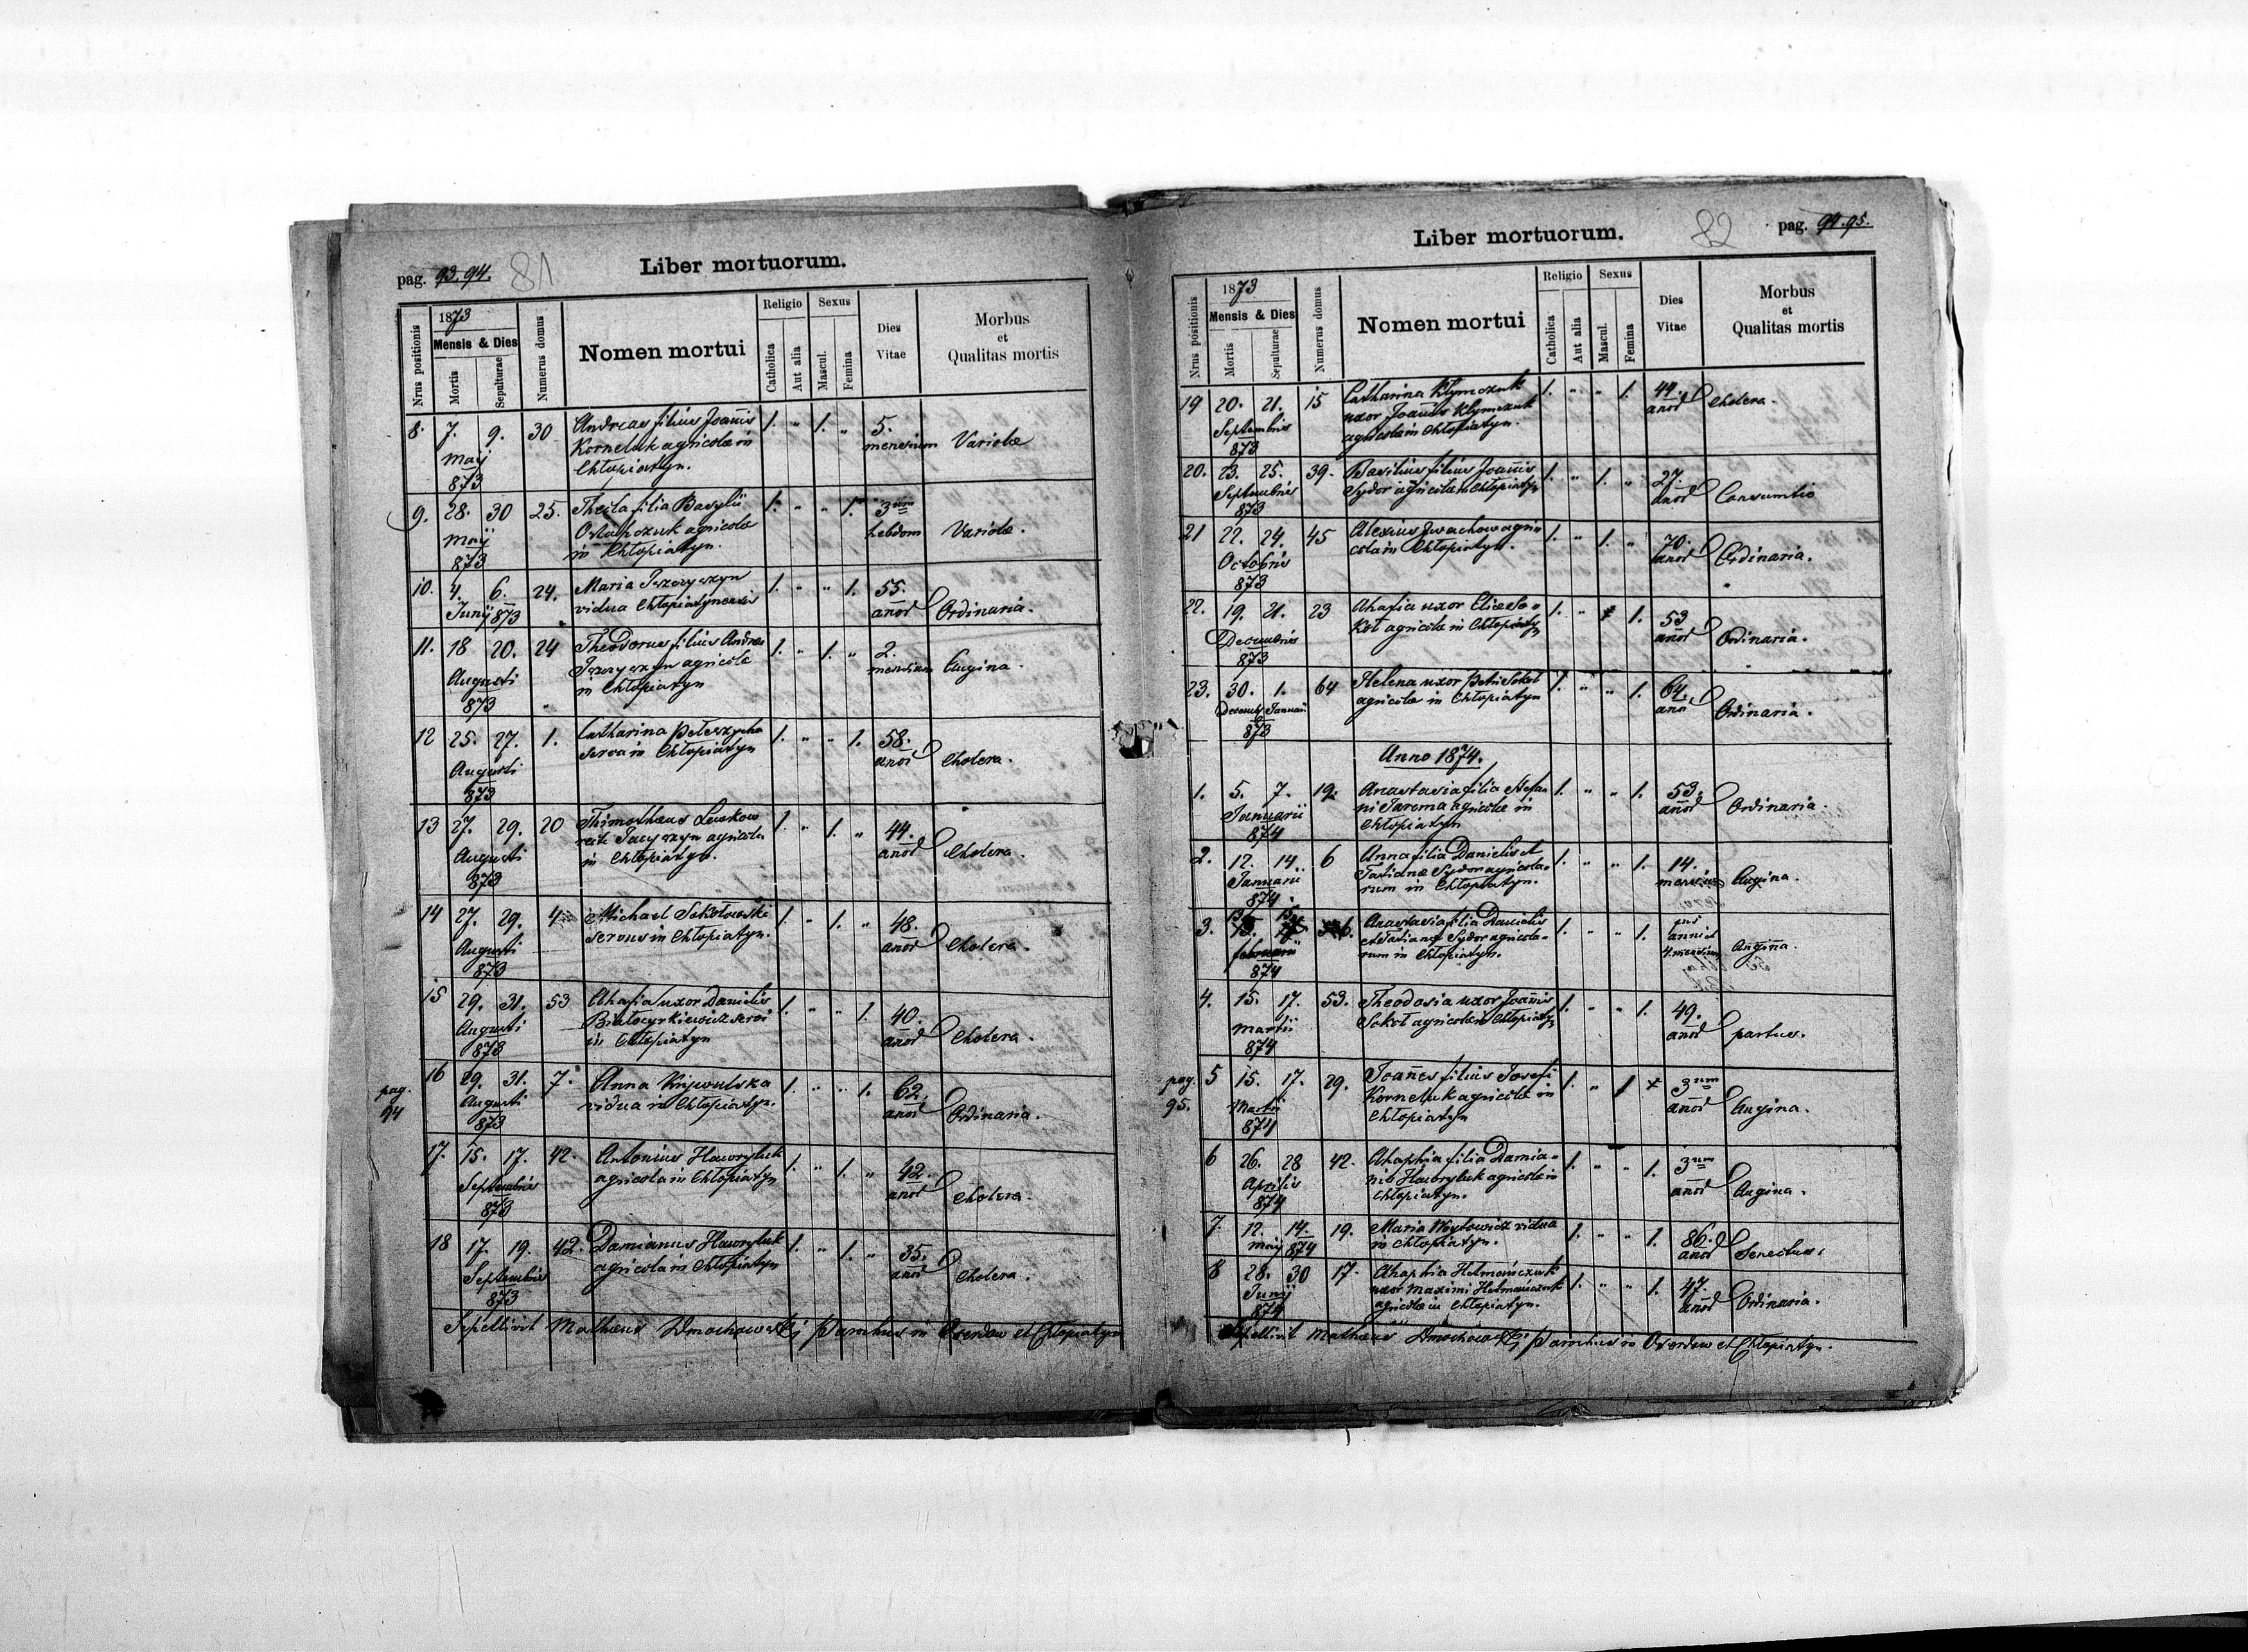 pag. 93.94. 81
Liber mortuorum.
Nrus positionis
1873
Mensis & Dies
Mortis
Sepulturae
Numerus domus
Nomen mortui
Religio
Catholica
Aut alia
Sexus
Mascul.
Femina
Dies
Vitae
Morbus
et
Qualitas mortis
8. 7. 9. 30 Andreas filius Joañis 1. " 1. " 5.
Maij Korneluk agricolae in mensium Variolae
873 Chłopiatyn.
9. 28. 30 25. Thecla filia Basylii 1. " " 1. 3um
Maij Ostapczuk agricolae hebdom Variolae.
873 in Chłopiatyn.
10. 4. 6. 24. Maria 1. " " 1. 55.
Junij 873 vidua Chłopiatynensis anor Ordinaria.
11. 18 20. 24 Theodorus filius Andreae 1. " 1. " 2.
Augusti agricolae mensium Angina.
873 in Chłopiatyn
12 25. 27. 1. Catharina 1. " " 1. 58.
Augusti serva in Chłopiatyn anor Cholera.
873
13 27. 29. 20 Thimotheus 1. " 1. " 44.
Augusti agricola anor Cholera.
873 in Chłopiatyn.
14 27. 29. 4 Michael Sokołowski 1. " 1. " 48.
Augusti servus in Chłopiatyn. anor Cholera.
873
15 29. 31. 53 Ahafia uxor Danielis 1. " " 1. 40.
Augusti Białocyrkiewicz servi anor Cholera.
873 in Chłopiatyn
pag. 94
16 29. 31. 7. Anna 1. " " 1. 62.
Augusti vidua in Chłopiatyn. anor Ordinaria.
873
17. 15. 17. 42. Antonius Hawryluk 1. " 1. " 42.
Septembris agricola in Chłopiatyn anor Cholera.
873
18 17. 19. 42. Damianus Hawryluk 1. " 1. " 35.
Septembris agricola in Chłopiatyn anor Cholera.
873
Sepellivit Matheus Dmochowski Parochus in Oserdow et Chłopiatyn
Liber mortuorum. 82 pag. 94.95.
Nrus positionis
1873
Mensis & Dies
Mortis
Sepulturae
Numerus domus
Nomen mortui
Religio
Catholica
Aut alia
Sexus
Mascul.
Femina
Dies
Vitae
Morbus
et
Qualitas mortis
19 20. 21. 15 Catharina Klymczuk 1. " " 1. 44.
Septembris uxor Joañis Klymczuk anor Cholera.
873 agricolae in Chłopiatyn.
20. 23. 25. 39. Basilius filius Joañis 1. " 1. " 27.
Septembris Sydor agricolae in Chłopiatyn anor Consumtio
873
21 22. 24. 45 Alexius Iwachow agri- 1. " 1. " 70.
Octobris cola in Chłopiatyn. anor Ordinaria.
873
22. 19. 21. 23 Ahafia uxor Eliae So- 1. " 1. 53
Decembris koł agricolae in Chłopiatyn anor Ordinaria.
873
23. 30. 1. 64 Helena uxor Petri Sokoł 1. " " 1. 64.
Decemb Januarii agricolae in Chłopiatyn anor Ordinaria.
873
Anno 1874.
1. 5. 7. 19. Anastasia filia Stefa- 1. " " 1. 53.
Januarii ni Jarema agricolae in anor Ordinaria.
874 Chłopiatyn
2. 12. 14. 6 Anna filia Danielis et 1. " " 1. 14.
Januarii Tatianae Sydor agricola- Angina.
874 rum in Chłopiatyn.
3. 13. 15. 6. Anastasia filia Danielis 1. " " 1. uni
februarii et Tatianae Sydor agricola- anni et
874 rum in Chłopiatyn. 4. mensium Angina.
4. 15. 17. 53. Theodosia uxor Joañis 1. " " 1. 49.
Martii Sokoł agricolae in Chłopiatyn anor partus.
874
pag. 95.
5 15. 17. 29. Joañes filius Josefi 1. " 1 3um
Martii Korneluk agricolae in anor Angina.
874 Chłopiatyn
6 26. 28 42. Ahaphia filia Damia- 1. " " 1. 3um
Aprilis ni Hawryluk agricolae in anor Angina.
874 Chłopiatyn.
7. 12. 14. 19. Maria Woytowicz vidua 1. " " 1. 86.
Maij 874 in Chłopiatyn. anor Senectus.
8 28. 30 17. Ahaphia Helmańczuk 1. " " 1. 47.
Junij uxor Maximi Helmańczuk anor Ordinaria.
874 agricolae in Chłopiatyn.
Sepellivit Matheus Dmochowski Parochus in Oserdow et Chłopiatyn.